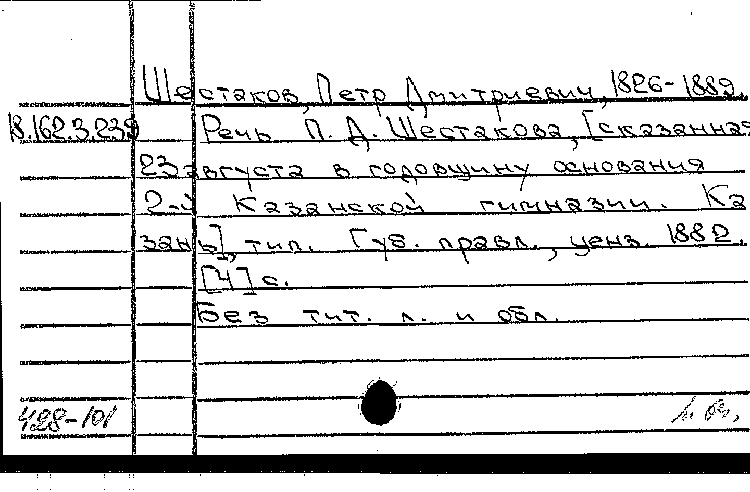 Шестаков, Петр Дмитриевич, 1826-1889.
18.162.3.239 Речь П. Д. Шестакова, [сказанная
23 августа в годовщину основания
2-й Казанской гимназии. Ка
зань], тип. Губ. правл., ценз. 1882.
[4] с.
Без тит. л. и обл.
428-101